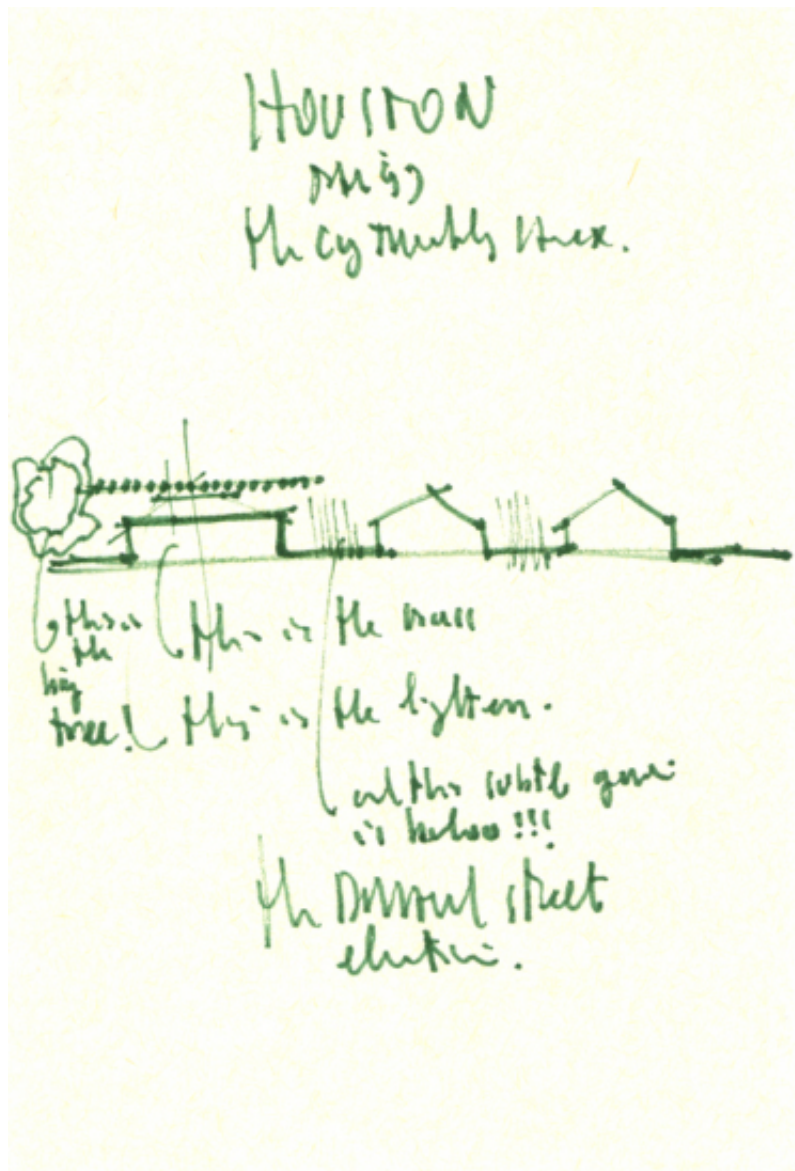 HOUSTON
this is
the Cy Twombly Annex.
this is
the
big
tree!
this is the wall
this is the light
and this subtle game
is below!!!
the street
elevation.